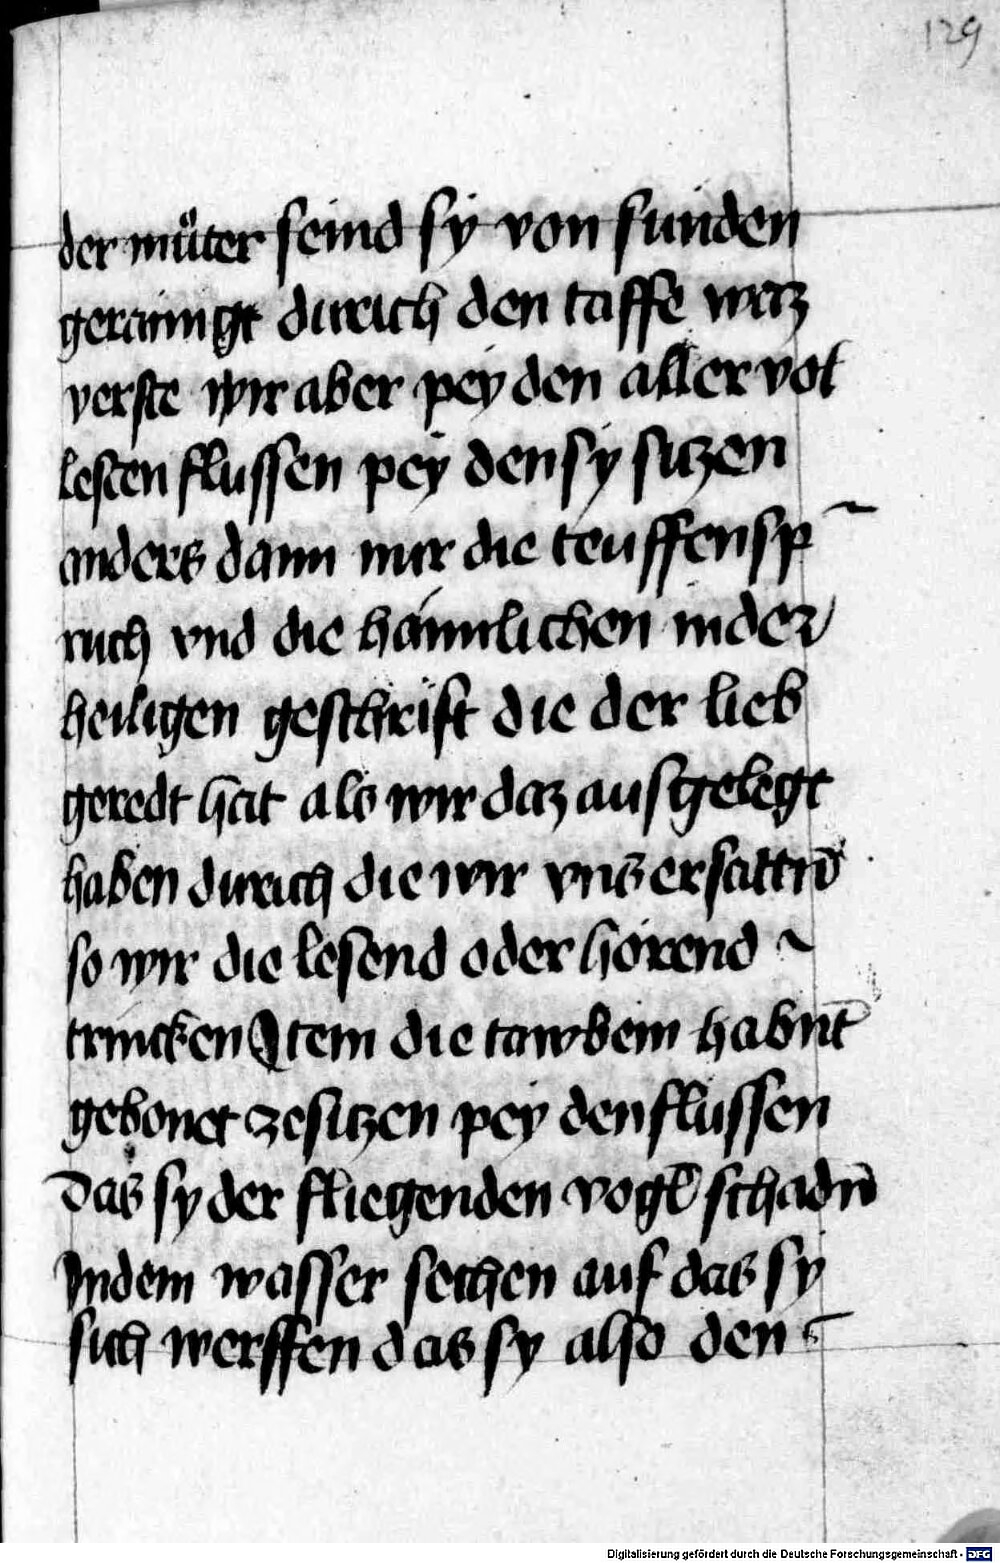 129
der müter seind sy von sunden
gerainigt durich den taffe waz
verste wir aber pey den aller vol
lesten flussen pey den sy sitzen
anders dann nur die teuffen sp
ruch vnd die háimlichen in der
heiligen geschrift die der lieb
geredt hat als wir daz ausgelegt
haben durich die wir vns ersattnd
so wir die lesend oder hórend
trincken Item die tawbem habnt
gebonet ze sitzen pey den flussen
das sy der fliegenden vogl schadn
Indem wasser sechen auf das sy
sich werffen das sy also den
Digitalisierung gefördert durch die Deutsche Forschungsgemeinschaft - DFG